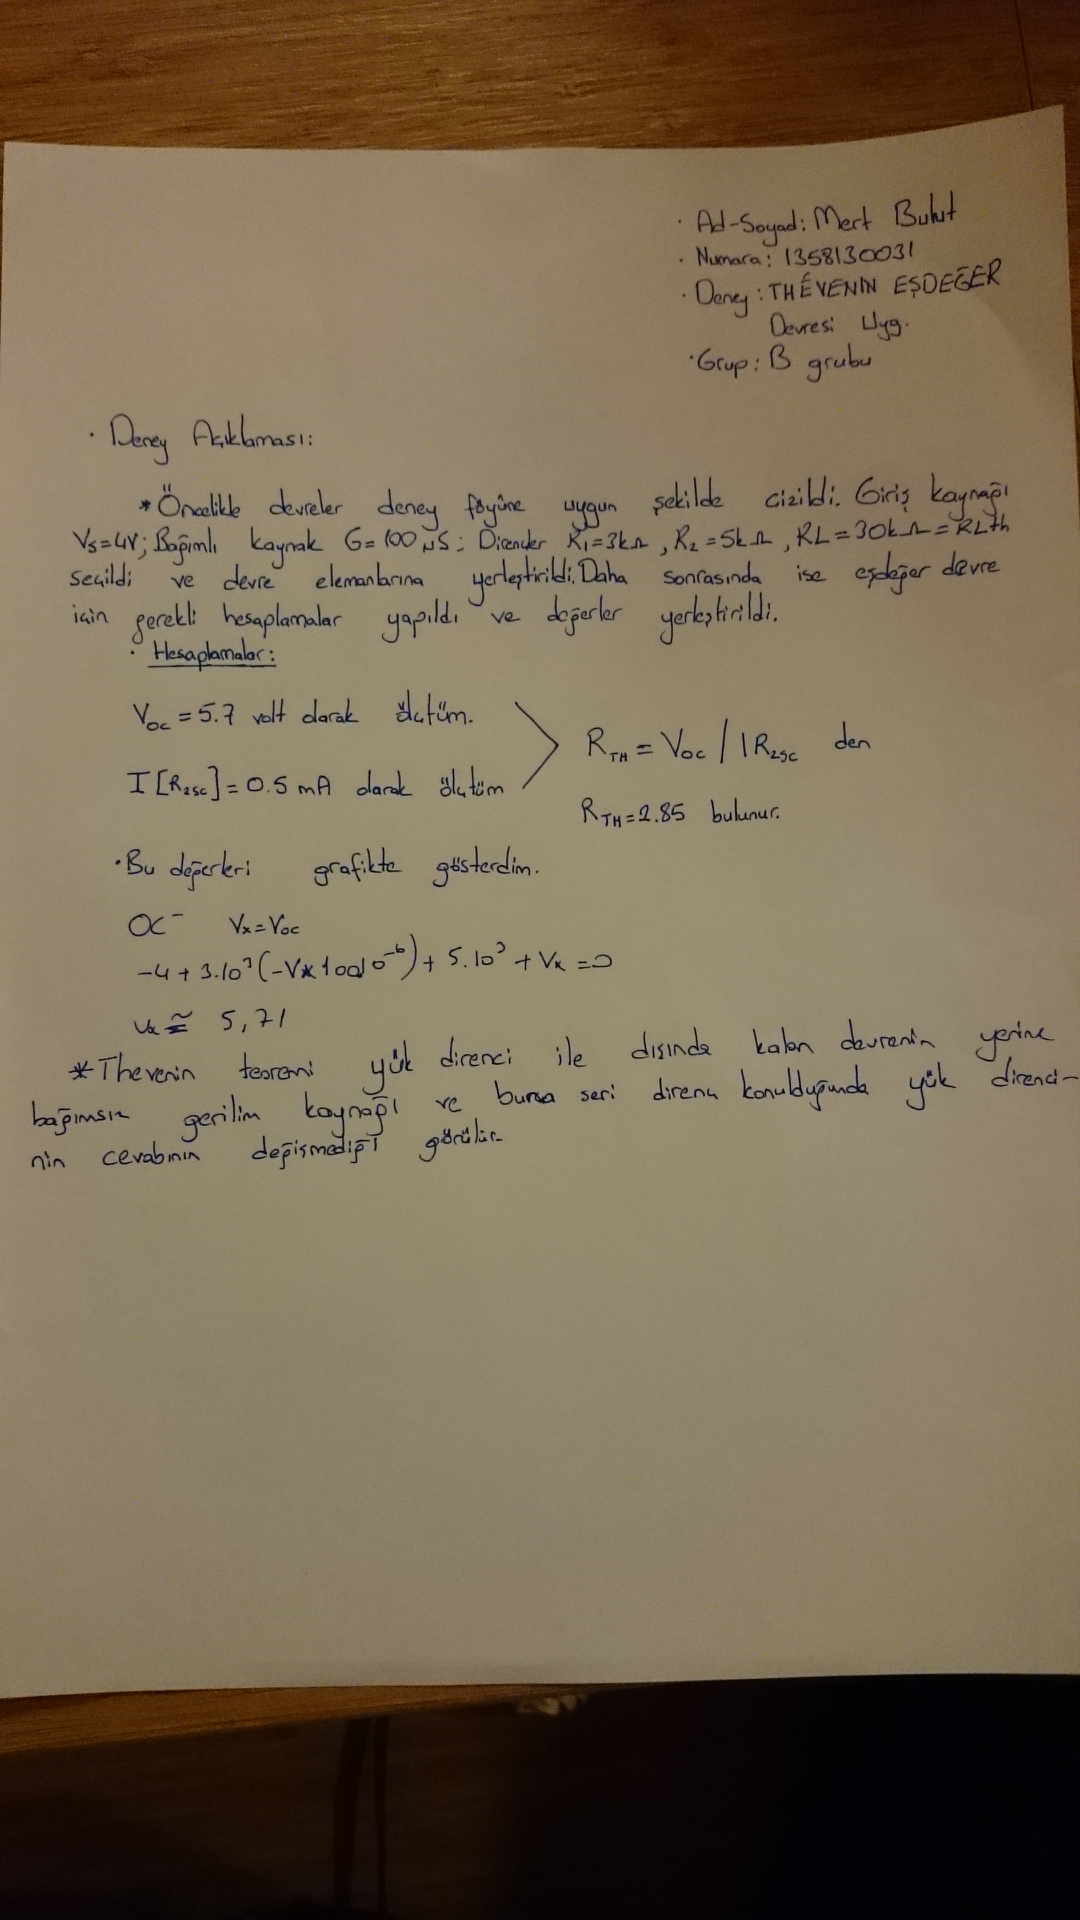 · Ad-Soyad: Mert Bulut
· Numara: 1358130031
· Deney: THÉVENİN EŞDEĞER
Devresi Uyg.
· Grup: B grubu
· Deney Açıklaması:
* Öncelikle devreler deney föyüne uygun şekilde cizildi. Giriş kaynağı
Vs=4V; Bağımlı kaynak G=100 µS; Dirençler R1=3kΩ, R2=5kΩ, RL=30kΩ=RLth
seçildi ve devre elemanlarına yerleştirildi. Daha sonrasında ise eşdeğer devre
için gerekli hesaplamalar yapıldı ve değerler yerleştirildi.
· Hesaplamalar:
Voc = 5.7 volt olarak ölçtüm.
I[R2sc] = 0.5 mA olarak ölçtüm
RTH = Voc / IR2sc den
RTH=2.85 bulunur.
· Bu değerleri grafikte gösterdim.
OC- Vx=Voc
-4 + 3.10³(-Vx100.10⁻⁶) + 5.10³ + Vx = 0
Vx ≅ 5,71
* Thevenin teoremi yük direnci ile dışında kalan devrenin yerine
bağımsız gerilim kaynağı ve buna seri direnç konulduğunda yük direnci-
nin cevabının değişmediği görülür.